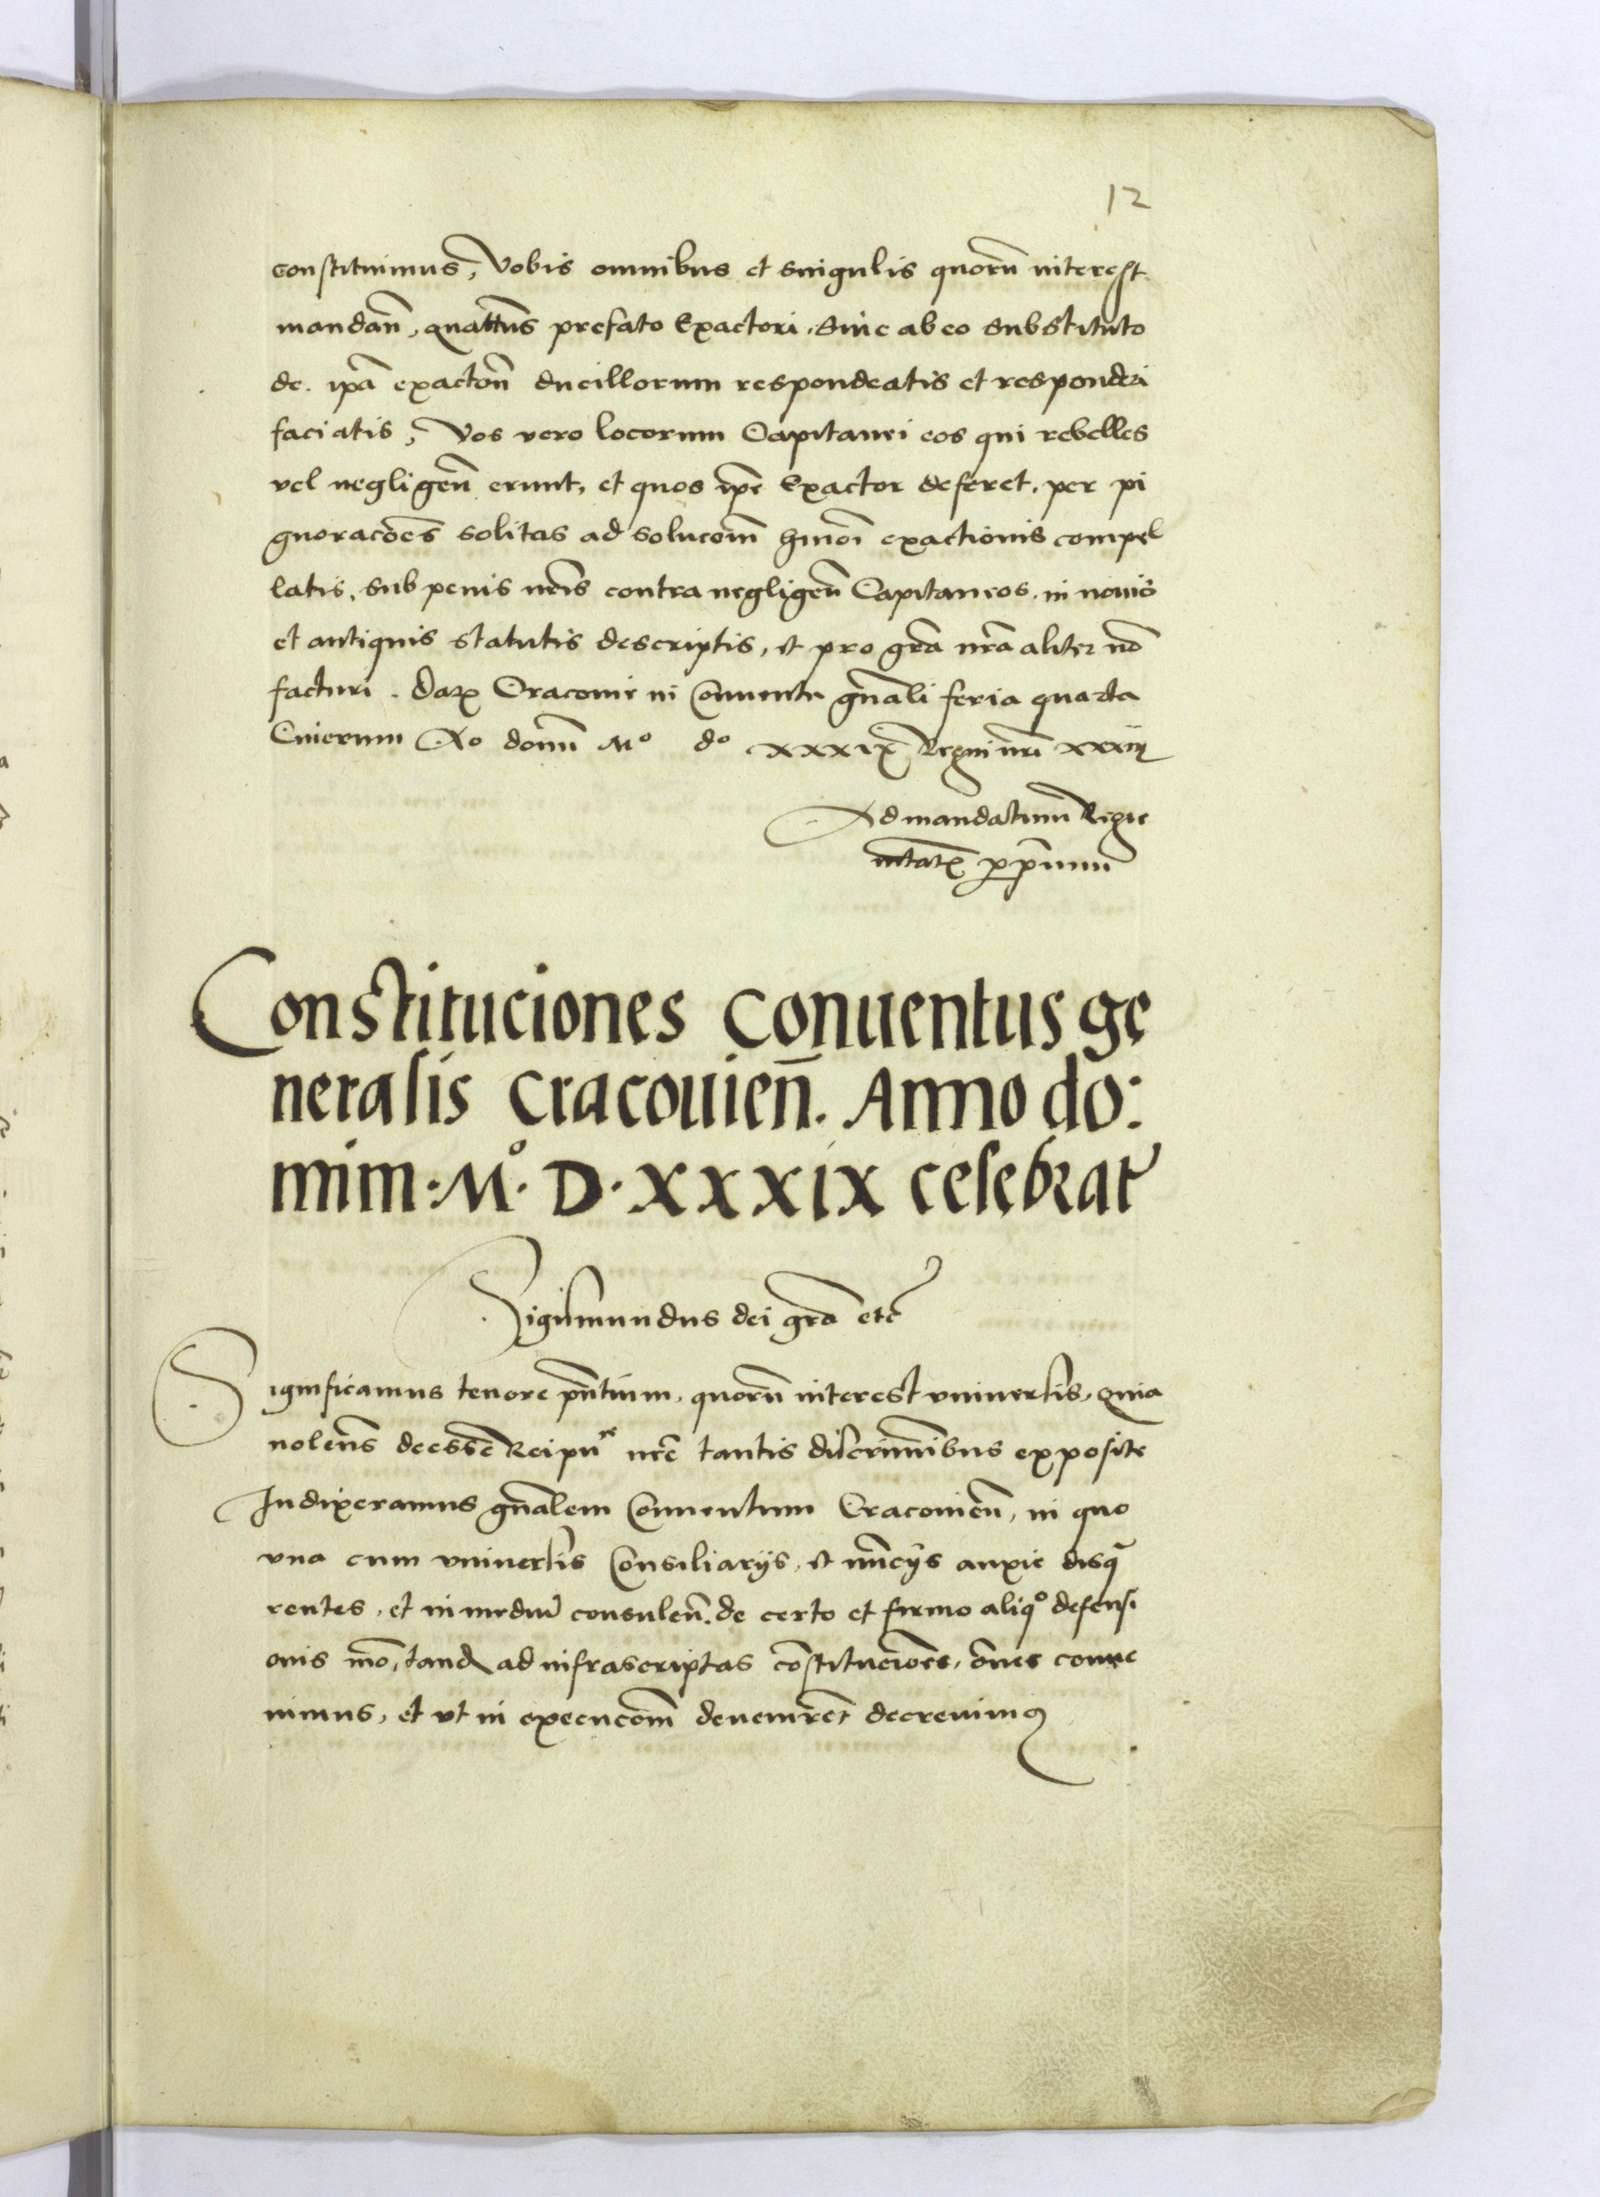 12
constituimus, Vobis omnibus et singulis quorũ interest
mandañ, quatn̄s prefato Exactori, Siue ab eo Substituto
de ip̄a exactoñ ducillorum respondeatis et responderi
faciatis, Vos vero locorum Capitanei eos qui rebelles
vel negligeñ erunt, et quos ip̄e Exactor deferet, per pi
gnoracões solitas ad solucoem̄ hm̄oi exactionis compel
latis, sub penis nr̄is contra negligeñ Capitaneos in nouis
et antiquis statutis descriptis, et pro gr̄a nr̄a aliter nō
facturi. Dat Cracouie in Conuentu gn̄ali feria quarta
Cinerum Ao domi M° d° xxxix Regni nr̄i xxxiij
Ad mandatum Regie
mtatis ppriuum
Constituciones Conuentus ge
neralis Cracouieñ. Anno do:
mini · M° · D · XXXIX celebrat
Sigismundus dei gr̄a etc̄
Significamus tenore pn̄tium, quorũ interest vniuersis, Quia
nolen̄s deesse Reipu͞ce nr̄e tantis discriminibus exposite
Indixeramus gn̄alem Conuentum Cracouieñ, in quo
vna cum vniuersis Consiliarijs, et nuncijs anxie disq̄
rentes, et in mediũ consuleñ, de certo et firmo aliq° defensi
onis mō, tandē ad infrascriptas cōstituciones, om̄es conue
nimus, et vt in execucoem̄ deuenirēt decreuimus